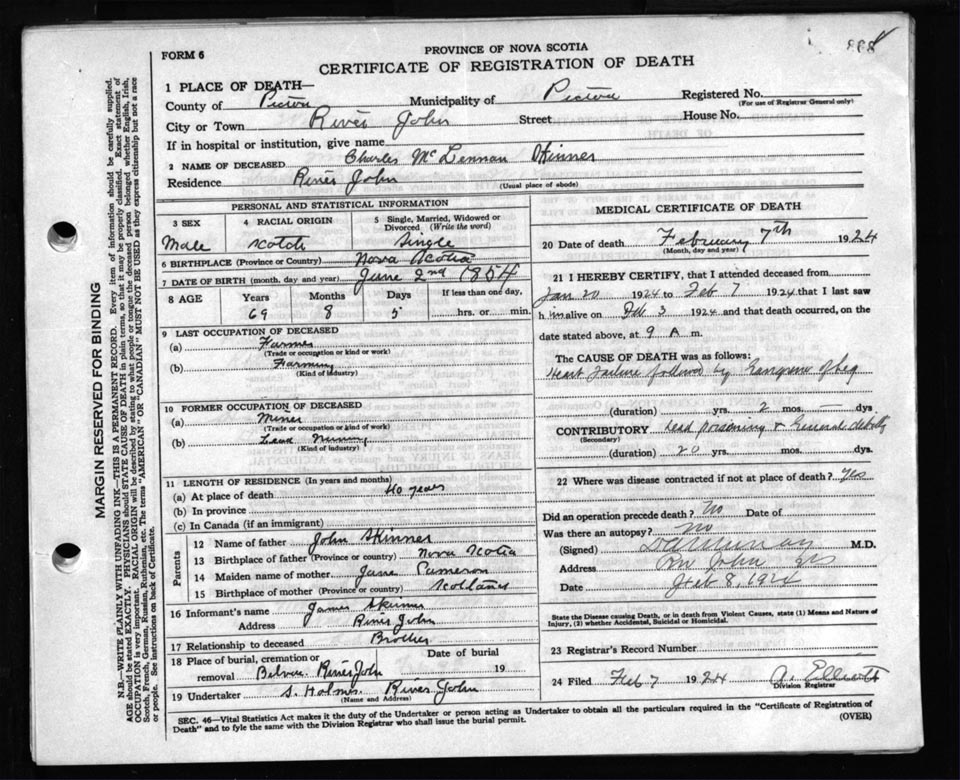 888
PROVINCE OF NOVA SCOTIA
FORM 6
CERTIFICATE OF REGISTRATION OF DEATH
1 PLACE OF DEATH—
County of Pictou Municipality of Pictou Registered No.
(For use of Registrar General only)
City or Town River John Street House No.
If in hospital or institution, give name
2 NAME OF DECEASED Charles McLennan Skinner
Residence River John
(Usual place of abode)
MARGIN RESERVED FOR BINDING
N.B.—WRITE PLAINLY WITH UNFADING INK—THIS IS A PERMANENT RECORD. Every item of information should be carefully supplied.
AGE should be stated EXACTLY. PHYSICIANS should STATE CAUSE OF DEATH in plain terms, so that it may be properly classified. Exact statement of
OCCUPATION is very important. RACIAL ORIGIN will be described by stating to what people or tongue the deceased person belonged whether English, Irish,
Scotch, French, German, Russian, Ruthenian, etc. The terms "AMERICAN" OR "CANADIAN" MUST NOT BE USED as they express citizenship but not a race
or people. See instructions on back of Certificate.
PERSONAL AND STATISTICAL INFORMATION
3 SEX 4 RACIAL ORIGIN 5 Single, Married, Widowed or
Divorced (Write the word)
Male Scotch Single
6 BIRTHPLACE (Province or Country) Nova Scotia
7 DATE OF BIRTH (month, day and year) June 2nd 1854
8 AGE Years Months Days If less than one day,
69 8 5 hrs. or min.
9 LAST OCCUPATION OF DECEASED
(a) Farmer
(Trade or occupation or kind or work)
(b) Farming
(Kind of industry)
10 FORMER OCCUPATION OF DECEASED
(a) Miner
(Trade or occupation or kind or work)
(b) Lead Mining
(Kind of industry)
11 LENGTH OF RESIDENCE (In years and months)
(a) At place of death 40 years
(b) In province
(c) In Canada (if an immigrant)
Parents
12 Name of father John Skinner
13 Birthplace of father (Province or country) Nova Scotia
14 Maiden name of mother Jane Cameron
15 Birthplace of mother (Province or country) Scotland
16 Informant's name James Skinner
Address River John
17 Relationship to deceased Brother
18 Place of burial, cremation or Date of burial
removal River John 19
19 Undertaker S. Holmes River John
(Name and Address)
MEDICAL CERTIFICATE OF DEATH
20 Date of death February 7th 1924
(Month, day and year)
21 I HEREBY CERTIFY, that I attended deceased from
Jan 20 1924 to Feb 7 1924 that I last saw
him alive on Feb 3 1924 and that death occurred, on the
date stated above, at 9 A m.
The CAUSE OF DEATH was as follows:
Heart failure followed by Gangrene of leg
(duration) yrs. 2 mos. — dys
CONTRIBUTORY Lead poisoning & General debility
(Secondary)
(duration) 20 yrs. mos. dys.
22 Where was disease contracted if not at place of death? Yes
Did an operation precede death? No Date of
Was there an autopsy? No
(Signed) M.D.
Address Riv John NS
Date Feb 8, 1924
State the Disease causing Death, or in death from Violent Causes, state (1) Means and Nature of
Injury, (2) whether Accidental, Suicidal or Homicidal.
23 Registrar's Record Number
24 Filed Feb 7 1924 A. Elliott
Division Registrar
SEC. 46—Vital Statistics Act makes it the duty of the Undertaker or person acting as Undertaker to obtain all the particulars required in the "Certificate of Registration of
Death" and to fyle the same with the Division Registrar who shall issue the burial permit. (OVER)